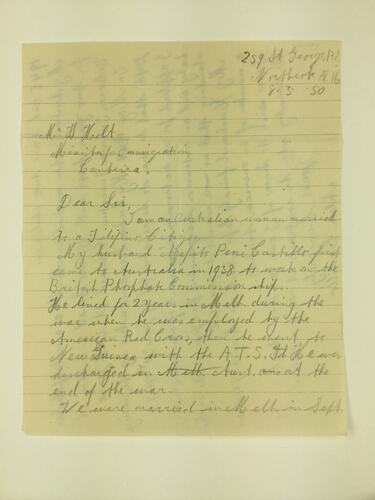 259 St Georges Rd
Northcote N 16
8. 3. 50
Mr H Holt
Minister for Immigration
Canberra.
Dear Sir,
I am an Australian woman married
to a Filipino Citizen
My husband Castillo first
came to Australia in 1938 to work on the
British Phosphate Commission ship.
He lived for 2 years in Melb during the
war when he was employed by the
American Red Cross, then he went to
New Guinea with the A.T.S. He was
discharged in Melb. Aust. at the
end of the war.
We were married in Melb in Sept.